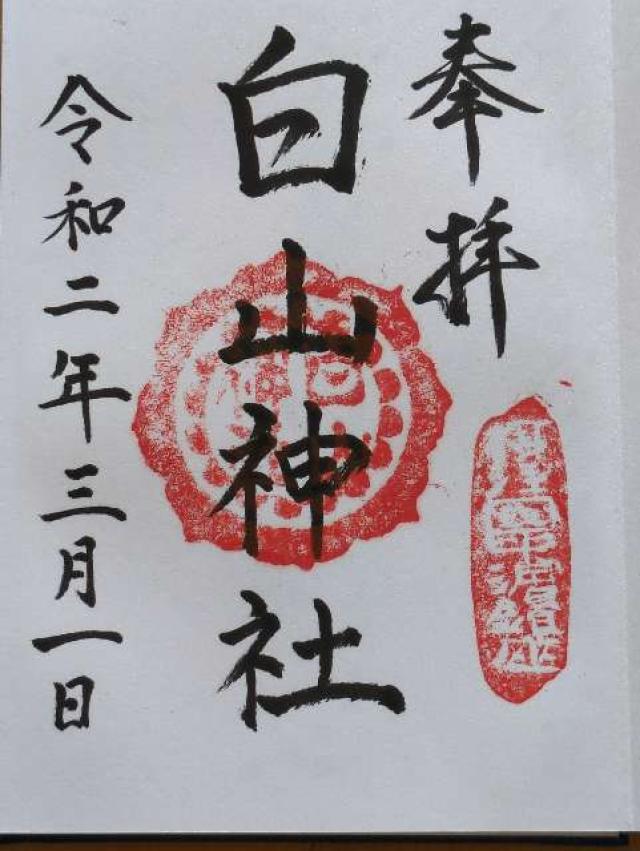 奉拝
白山神社
令和二年三月一日